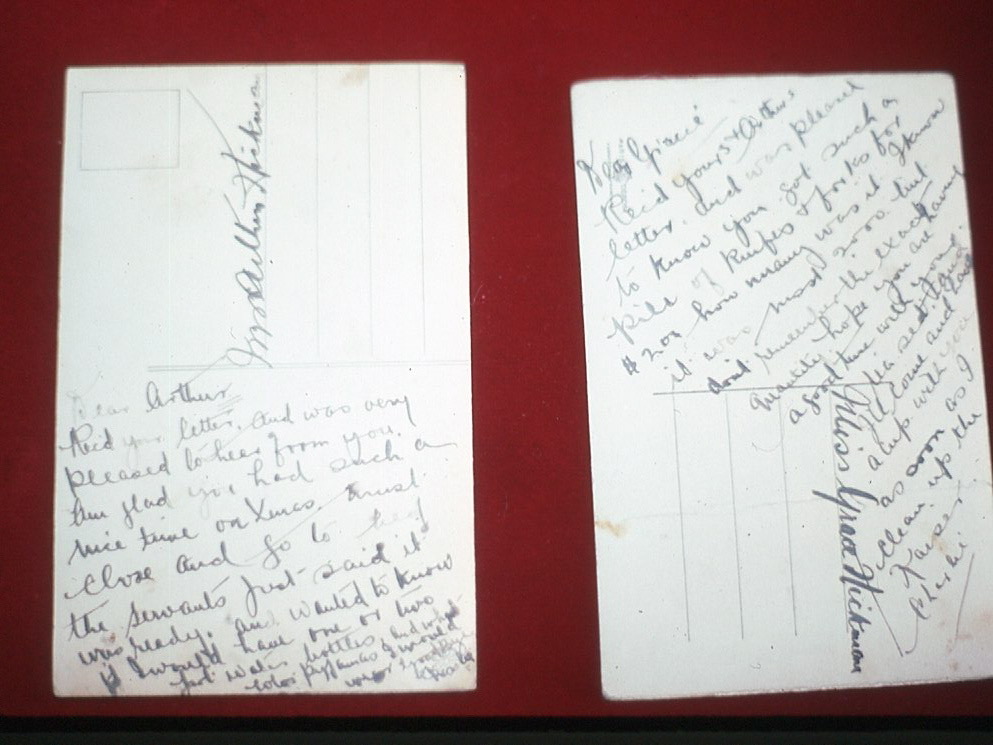 Arthur Hickman
Dear Arthur
Rec'd your letter, and was very
pleased to hear from you.
Am glad you had such a
nice time on Xmas. must
close and go to bed
the servants just said it
was ready, and wanted to know
if I would have one or two
hot water bottles and what
color pyjamas I would
wear
Dear Gracie
Rec'd yours & Arthurs
letter, and was pleased
to know you got such a
pile of knifes & forks for
how many was it I know
it was most 2000. but
dont remember the exact
quantity hope you are having
a good time with your
tea set
welcome and
a cup with you
as soon as I
clean up the
Kaiser.
Charlie
Miss Grace Hickman